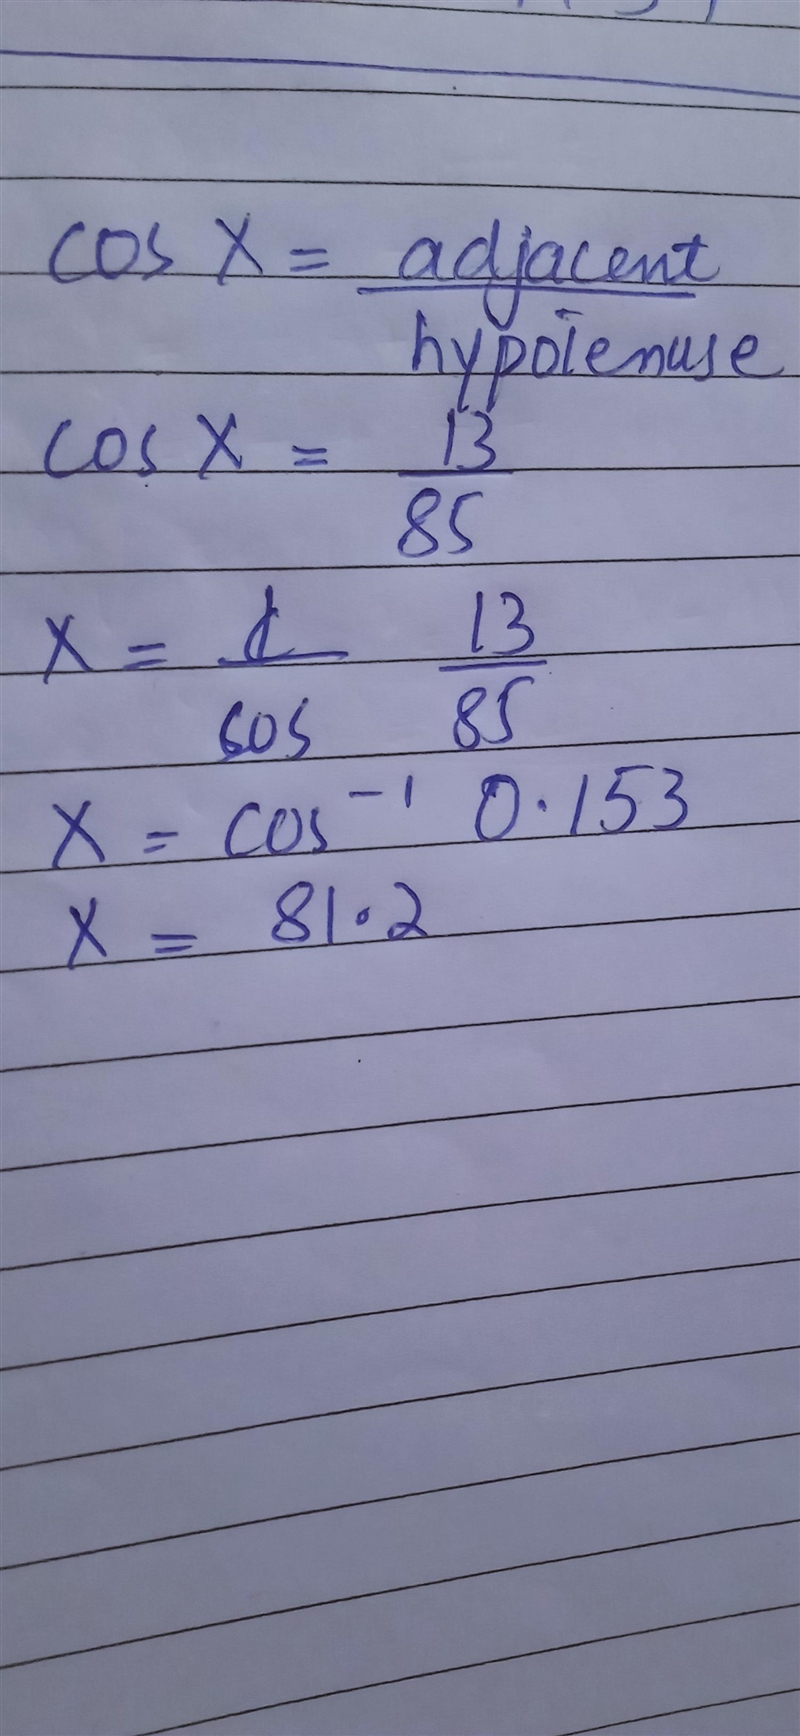 cos X = adjacent
hypotenuse
cos X = 13
85
X = 1 13
cos 85
X = cos⁻¹ 0.153
X = 81.2